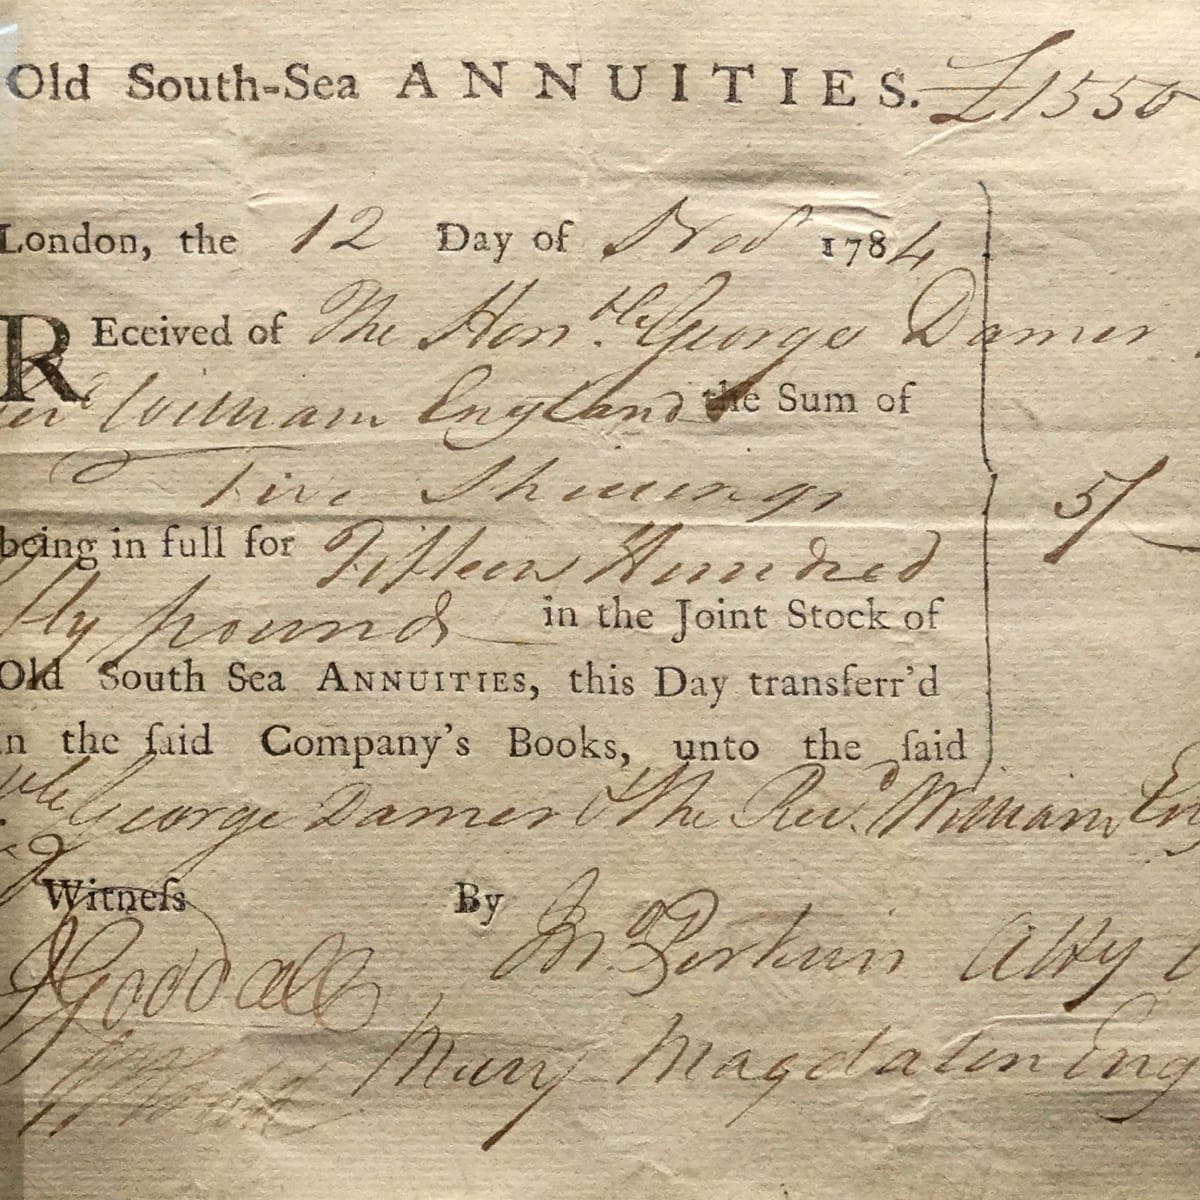 Old South-Sea ANNUITIES. £1550
London, the 12 Day of Novr 1784
REceived of The Honble George Damer
William England the Sum of
Five Shillings 5/
being in full for Fifteen Hundred
fty pounds in the Joint Stock of
Old South Sea ANNUITIES, this Day transferr'd
in the ſaid Company's Books, unto the ſaid
ble George Damer & The Revd. William Eng
Witneſs By Jno. Perkin Atty
J Goodall
Mary Magdalen Eng